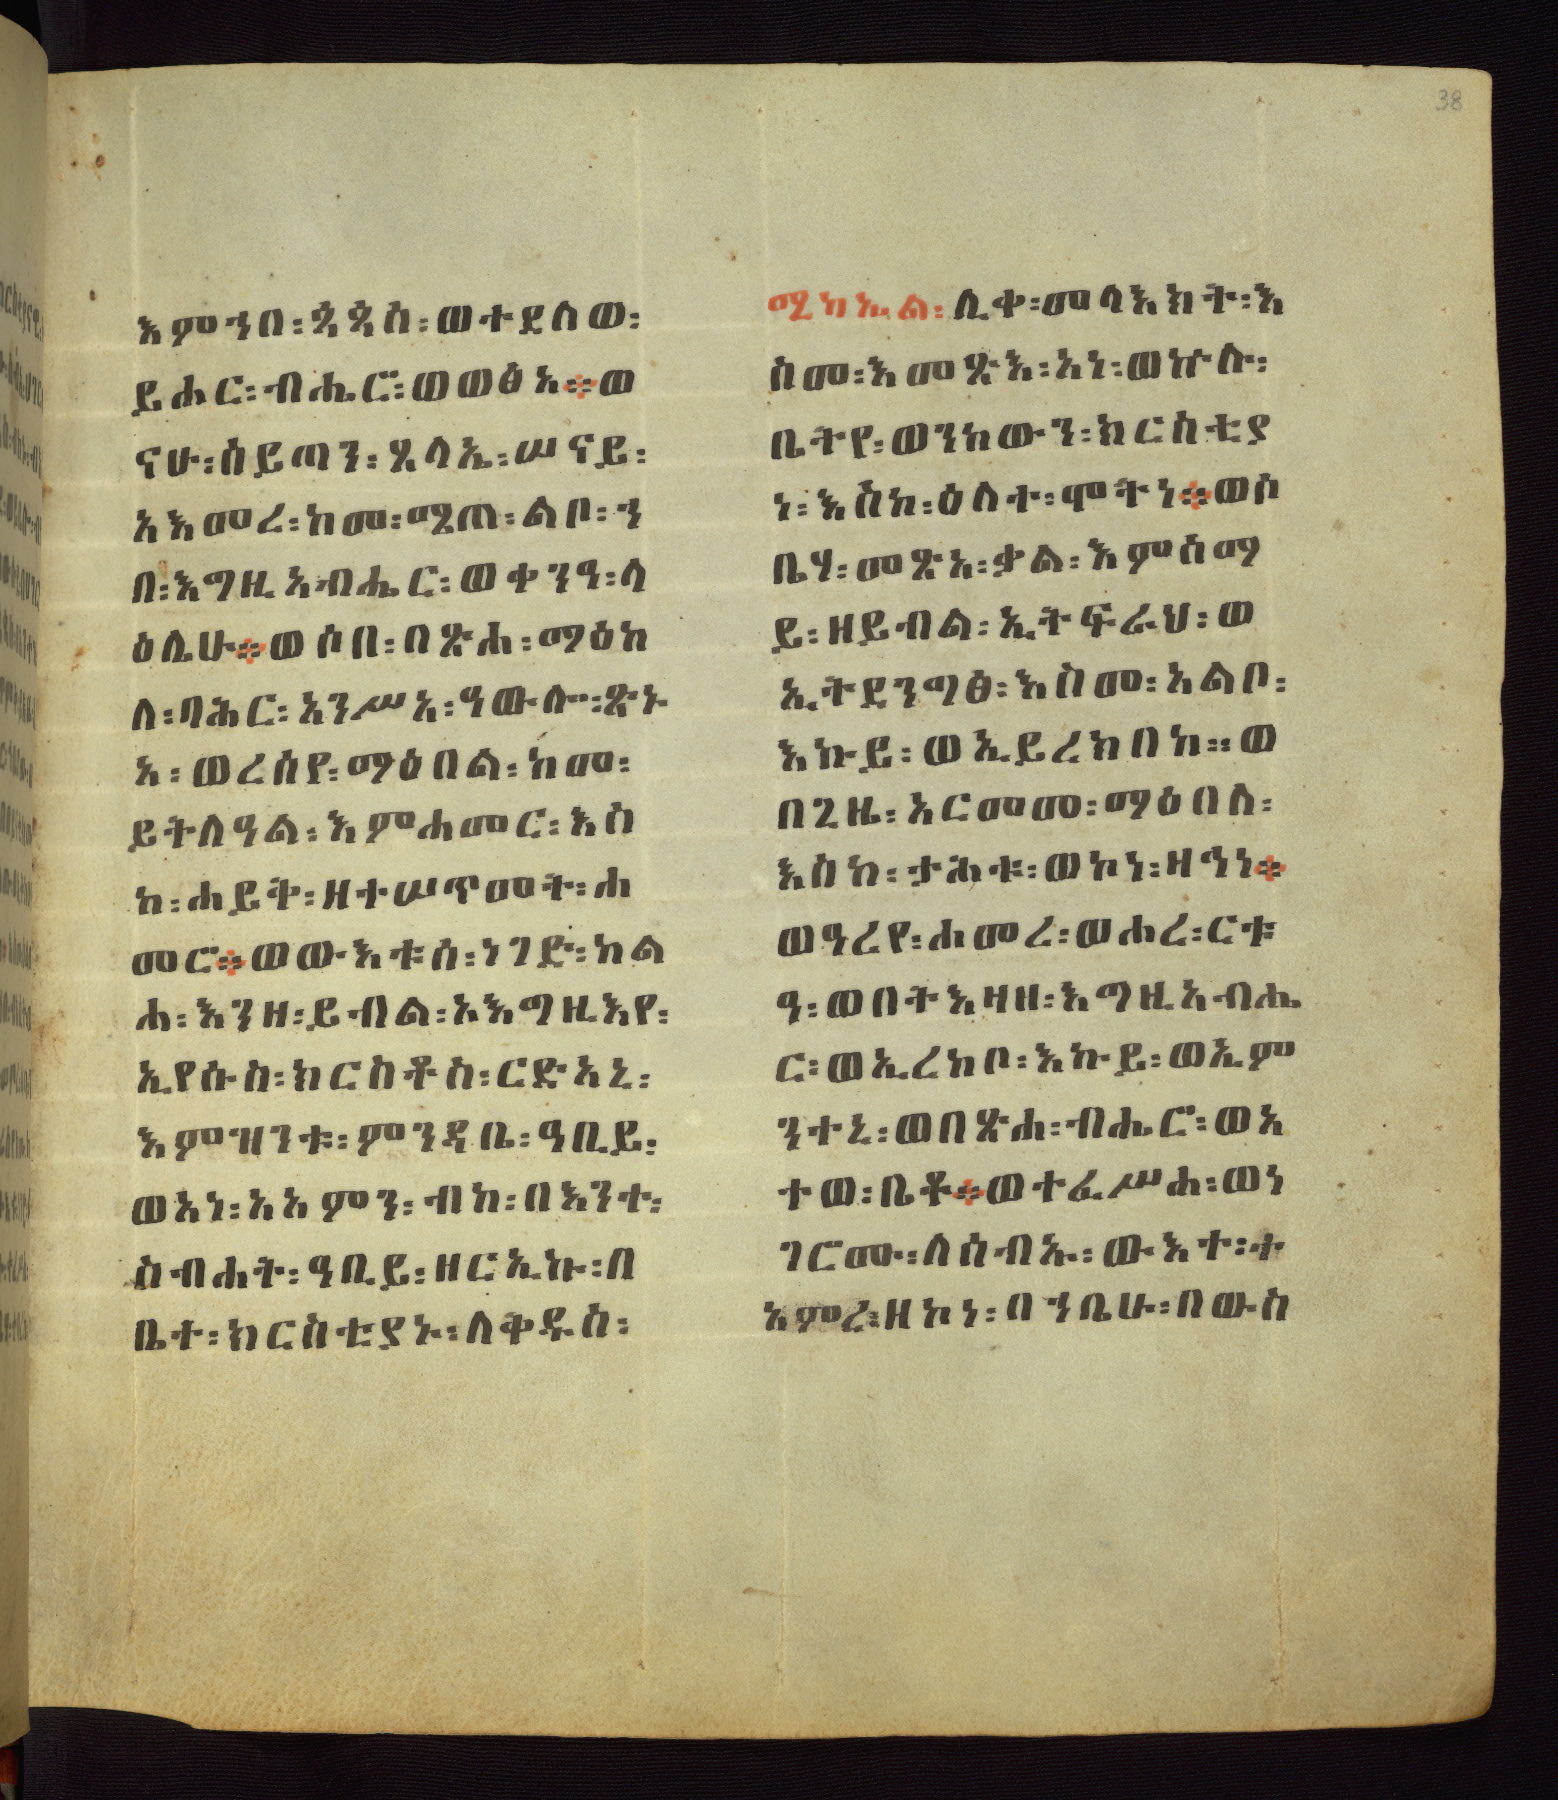 38
እምኀበ፡ ጳጳስ፡ ወተደለወ፡
ይሐር፡ ብሔሮ፡ ወወፅአ፨ ወ
ናሁ፡ ሰይጣን፡ ጸላኤ፡ ሠናይ፡
አእመረ፡ ከመ፡ ሜጠ፡ ልቦ፡ ኀ
በ፡ እግዚአብሔር፡ ወቀንዓ፡ ላ
ዕሌሁ፨ ወሶበ፡ በጽሐ፡ ማዕከ
ለ፡ ባሕር፡ አንሥአ፡ ዓውሎ፡ ጽኑ
አ፡ ወረሰየ፡ ማዕበል፡ ከመ፡
ይትለዓል፡ እምሐመር፡ እስ
ከ፡ ሐይቅ፡ ዘተሠጥመት፡ ሐ
መር፨ ወውእቱሰ፡ ነገድ፡ ከል
ሐ፡ እንዘ፡ ይብል፡ኦእግዚእየ፡
ኢየሱስ፡ ክርስቶስ፡ ርድአኒ፡
እምዝንቱ፡ ምንዳቤ፡ ዓቢይ፡
ወአነ፡ አአምን፡ ብከ፡ በእንተ፡
ስብሐት፡ ዓቢይ፡ ዘርኢኩ፡ በ
ቤተ፡ ክርስቲያኑ፡ ለቅዱስ፡
ሚካኤል፡ ሊቀ፡ መላእክት፡ እ
ስመ፡ እመጽእ፡ አነ፡ ወኵሉ፡
ቤትየ፡ ወንከውን፡ ክርስቲያ
ነ፡ እስከ፡ ዕለተ፡ ሞትነ፨ ወሶ
ቤሃ፡ መጽአ፡ ቃል፡ እምሰማ
ይ፡ ዘይብል፡ ኢትፍራህ፡ ወ
ኢትደንግፅ፡ እስመ፡ አልቦ፡
እኩይ፡ ወኢይረክበከ። ወ
በጊዜ፡ አርመመ፡ ማዕበለ፡
እስከ፡ ታሕቱ፡ ወኮነ፡ ዛኅነ፨
ወዓረየ፡ ሐመረ፡ ወሐረ፡ ርቱ
ዓ፡ ወበትእዛዘ፡ እግዚአብሔ
ር፡ ወኢረከቦ፡ እኩይ፡ ወኢም
ንተኒ፡ ወበጽሐ፡ ብሔሮ፡ ወአ
ተወ፡ ቤቶ፨ ወተፈሥሐ፡ ወነ
ገርሙ፡ ለሰብኡ፡ ውእተ፡ ተ
አምረ፡ ዘኮነ፡ በኀቤሁ፡ በውስ